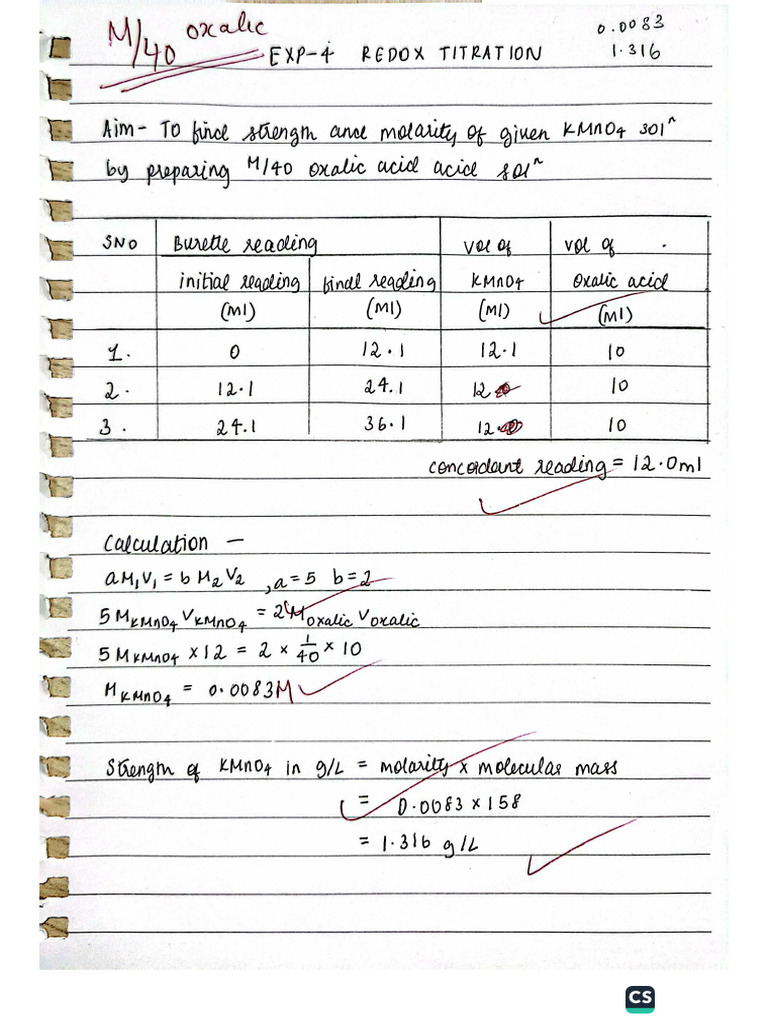 M/40 oxalic
0.0083
EXP-4 REDOX TITRATION
1.316
Aim- To find strength and molarity of given KMnO4 solⁿ
by preparing M/40 oxalic acid acid solⁿ
SNO Burette reading vol of vol of
initial reading final reading KMnO4 Oxalic acid
(ml) (ml) (ml) (ml)
1. 0 12.1 12.1 10
2. 12.1 24.1 12 10
3. 24.1 36.1 12 10
concordant reading = 12.0ml
Calculation –
aM₁V₁ = bM₂V₂ , a=5 b=2
5 M KMnO4 V KMnO4 = 2 M oxalic V oxalic
5 M KMnO4 × 12 = 2 × 1/40 × 10
M KMnO4 = 0.0083M
Strength of KMnO4 in g/L = molarity × molecular mass
= 0.0083 × 158
= 1.316 g/L
CS